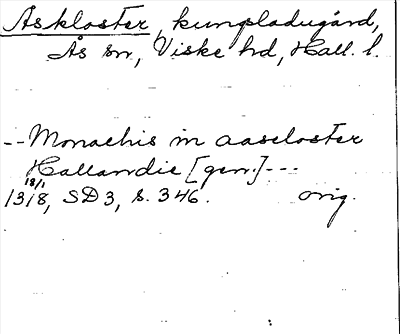 Åskloster, kungsladugård,
Ås sn, Viske hd, Hall. l.
--Monachis in aascloster
Hallandie [gen.]---
18/1
1318, SD 3, s. 346. orig.